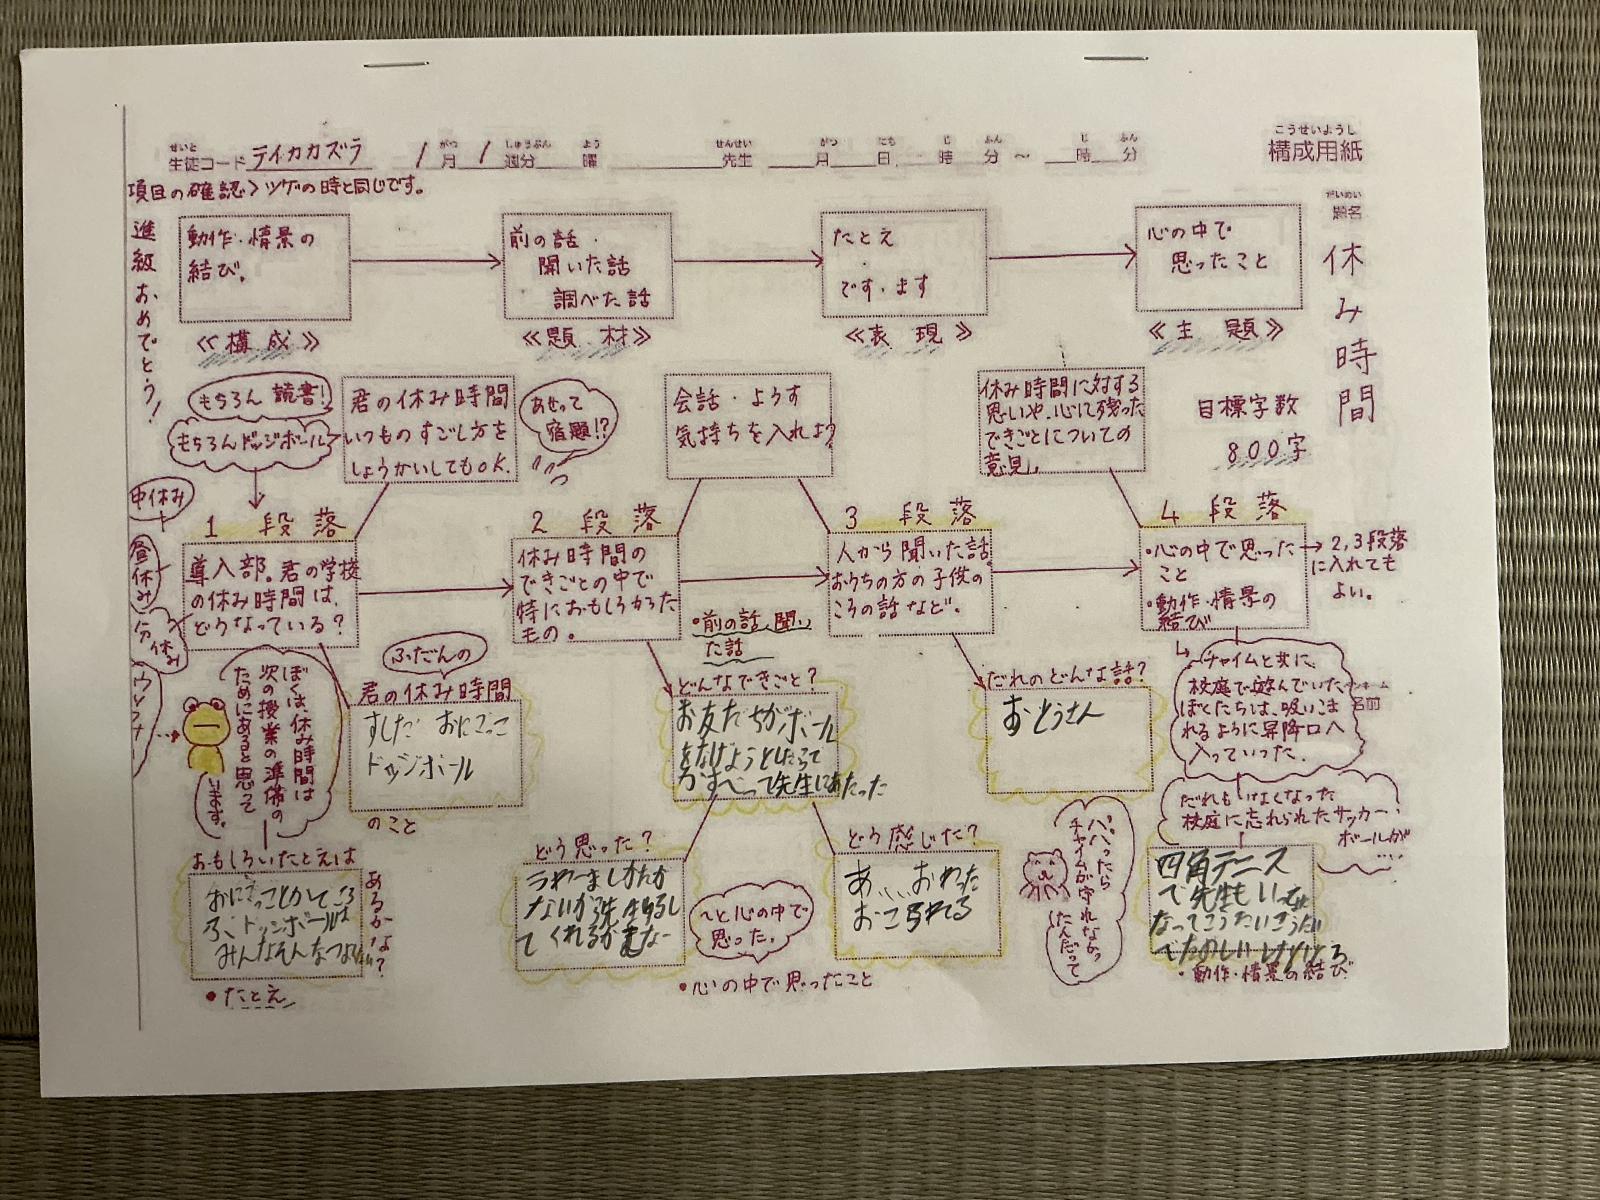 こうせいようし
構成用紙
せいと
生徒コード テイカカズラ
がつ しゅうぶん よう せんせい がつ にち じ ふん じ ふん
1月1週分 曜 先生 月 日 時 分～ 時 分
項目の確認〉ツゲの時と同じです。
進級おめでとう!
だいめい
題名
休み時間
目標字数
800字
動作・情景の
結び。
≪構成≫
前の話・
聞いた話
調べた話
≪題材≫
たとえ
・
です・ます
≪表現≫
心の中で
思ったこと
≪主題≫
もちろん読書!
もちろんドッジボール
君の休み時間
いつものすごし方を
しょうかいしてもOK.
あせって
宿題!?
会話・ようす
気持ちを入れよう
休み時間に対する
思いや、心に残った
できごとについての
意見。
中休み
昼休み
1段落
導入部。君の学校
の休み時間は、
どうなっている?
2段落
休み時間の
できごとの中で
特におもしろかった
もの。
3段落
人から聞いた話。
おうちの方の子供の
ころの話など。
4段落
・心の中で思った
こと
・動作・情景の
結び
→2,3段落
に入れても
よい。
・前の話、聞い
た話
ぼくは、休み時間は
次の授業の準備の
ためにあると思って
います。
ふだんの
君の休み時間
おにごっこ
ドッジボール
のこと
どんなできごと?
お友だちがボール
をなげようとしたらて
がすべって先生にあたった
だれのどんな話?
おとうさん
チャイムと共に、
校庭で遊んでいた
ぼくたちは、吸いこま
れるように昇降口へ
入っていった。
名前
だれもいなくなった
校庭に忘れられたサッカー
ボールが
……
おもしろいたとえは
あるかな?
・たとえ
どう思った?
～と心の中で
思った。
・心の中で思ったこと
どう感じた?
あ、、、おわった
おこられる
パパったら
チャイムが守れなかっ
たんだって
四角テニス
で先生も
・動作・情景の結び